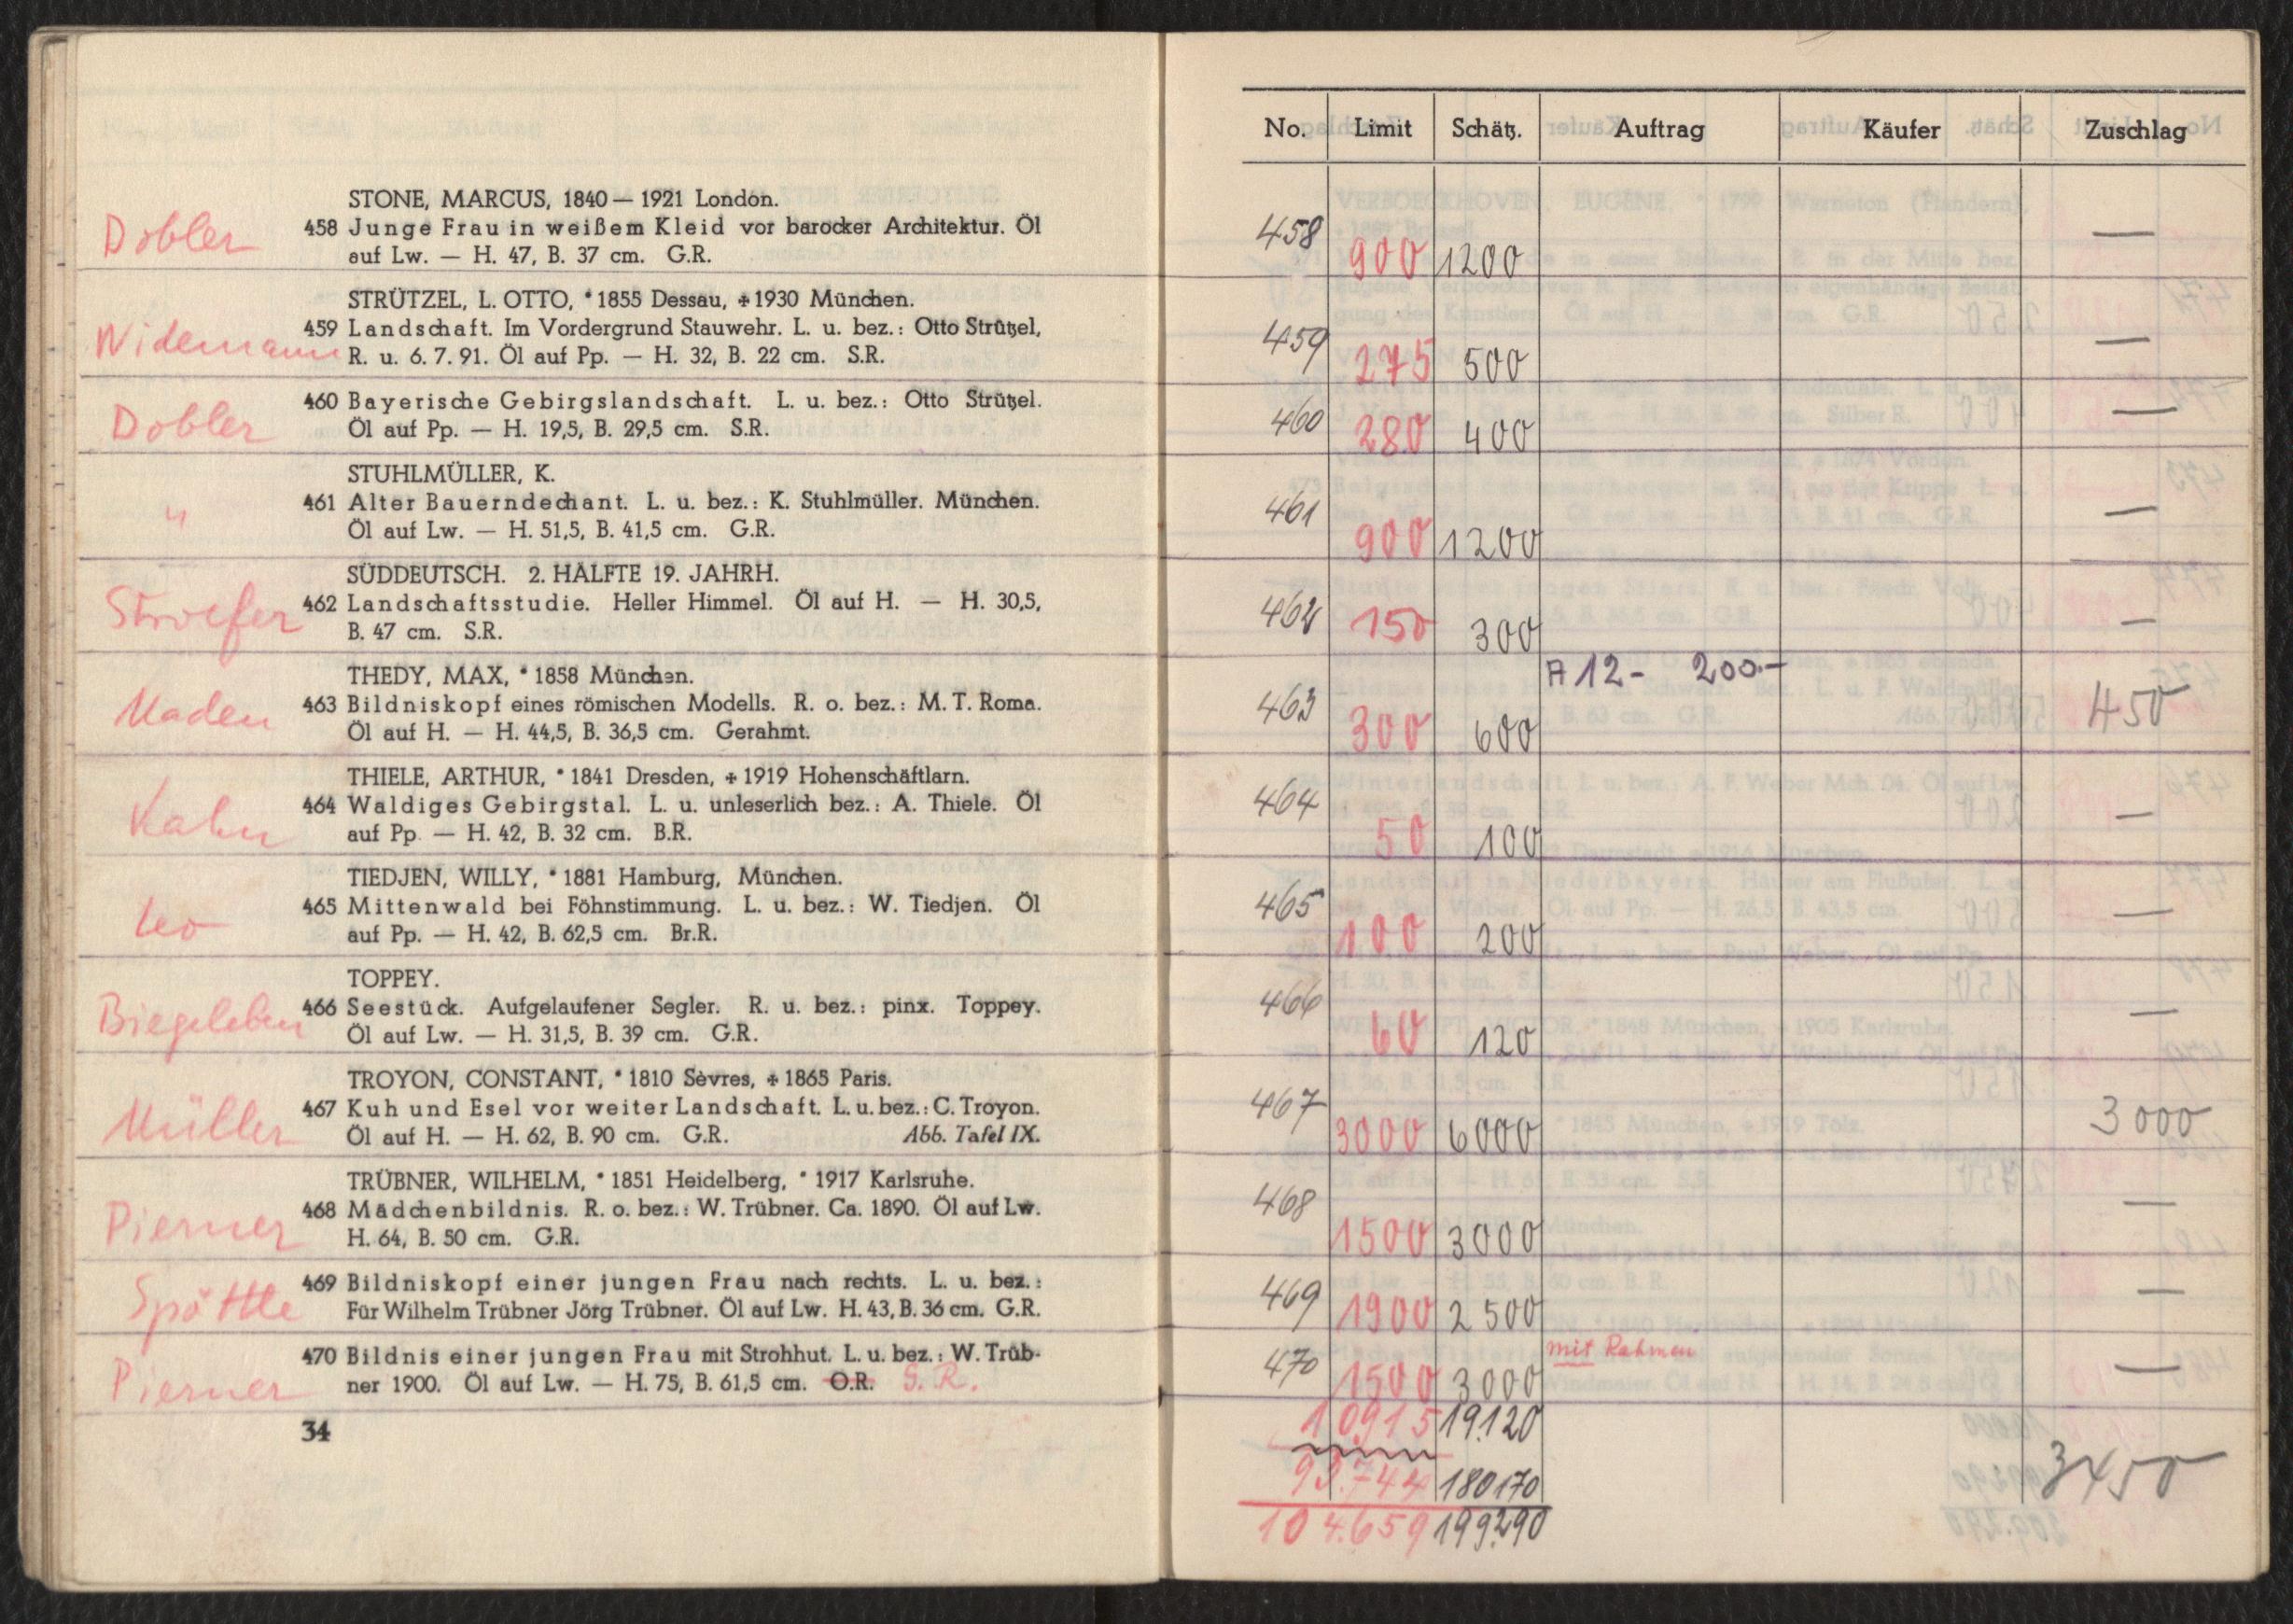 STONE, MARCUS, 1840 — 1921 London.
Dobler 458 Junge Frau in weißem Kleid vor barocker Architektur. Öl
auf Lw. — H. 47, B. 37 cm. G.R.
STRÜTZEL, L. OTTO, * 1855 Dessau, + 1930 München.
Widemann 459 Landschaft. Im Vordergrund Stauwehr. L. u. bez.: Otto Strützel,
R. u. 6. 7. 91. Öl auf Pp. — H. 32, B. 22 cm. S.R.
Dobler 460 Bayerische Gebirgslandschaft. L. u. bez.: Otto Strützel.
Öl auf Pp. — H. 19,5, B. 29,5 cm. S.R.
STUHLMÜLLER, K.
" 461 Alter Bauerndechant. L. u. bez.: K. Stuhlmüller. München.
Öl auf Lw. — H. 51,5, B. 41,5 cm. G.R.
SÜDDEUTSCH. 2. HÄLFTE 19. JAHRH.
Stroefer 462 Landschaftsstudie. Heller Himmel. Öl auf H. — H. 30,5,
B. 47 cm. S.R.
THEDY, MAX, * 1858 München.
Maden 463 Bildniskopf eines römischen Modells. R. o. bez.: M. T. Roma.
Öl auf H. — H. 44,5, B. 36,5 cm. Gerahmt.
THIELE, ARTHUR, * 1841 Dresden, + 1919 Hohenschäftlarn.
Kahn 464 Waldiges Gebirgstal. L. u. unleserlich bez.: A. Thiele. Öl
auf Pp. — H. 42, B. 32 cm. B.R.
TIEDJEN, WILLY, * 1881 Hamburg, München.
Leo 465 Mittenwald bei Föhnstimmung. L. u. bez.: W. Tiedjen. Öl
auf Pp. — H. 42, B. 62,5 cm. Br.R.
TOPPEY.
Biegeleben 466 Seestück. Aufgelaufener Segler. R. u. bez.: pinx. Toppey.
Öl auf Lw. — H. 31,5, B. 39 cm. G.R.
TROYON, CONSTANT, * 1810 Sèvres, + 1865 Paris.
Müller 467 Kuh und Esel vor weiter Landschaft. L. u. bez.: C. Troyon.
Öl auf H. — H. 62, B. 90 cm. G.R. Abb. Tafel IX.
TRÜBNER, WILHELM, * 1851 Heidelberg, * 1917 Karlsruhe.
Pierner 468 Mädchenbildnis. R. o. bez.: W. Trübner. Ca. 1890. Öl auf Lw.
H. 64, B. 50 cm. G.R.
Spöttle 469 Bildniskopf einer jungen Frau nach rechts. L. u. bez.:
Für Wilhelm Trübner Jörg Trübner. Öl auf Lw. H. 43, B. 36 cm. G.R.
Pierner 470 Bildnis einer jungen Frau mit Strohhut. L. u. bez.: W. Trüb-
ner 1900. Öl auf Lw. — H. 75, B. 61,5 cm. O.R. G.R.
34
No. Limit Schätz. Auftrag Käufer Zuschlag
458 900 1200 —
459 275 500 —
460 280 400 —
461 900 1200 —
462 150 300 —
463 300 600 A 12 - 200.- 450
464 50 100 —
465 100 200 —
466 60 120 —
467 3000 6000 3000
468 1500 3000 —
469 1900 2500 —
470 1500 3000 mit Rahmen —
10.915 19.120
93.744 180170 3450
104.659 199.290